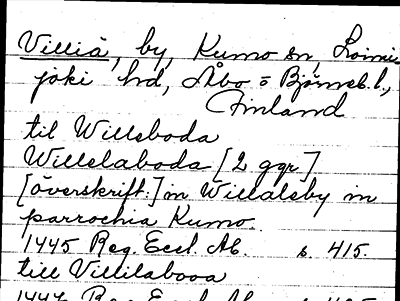 Villiä, by, Kumo sn, Loimi-
joki hd, Åbo = Björneb. l.,
Finland
til Willeboda
Willelaboda [2 ggr.]
[överskrift:] in Willalsby in
parrochia Kumo.
1445 Reg. Eccl. Ab. s. 415.
till Villilaboda
1447 Reg. Eccl. Ab.